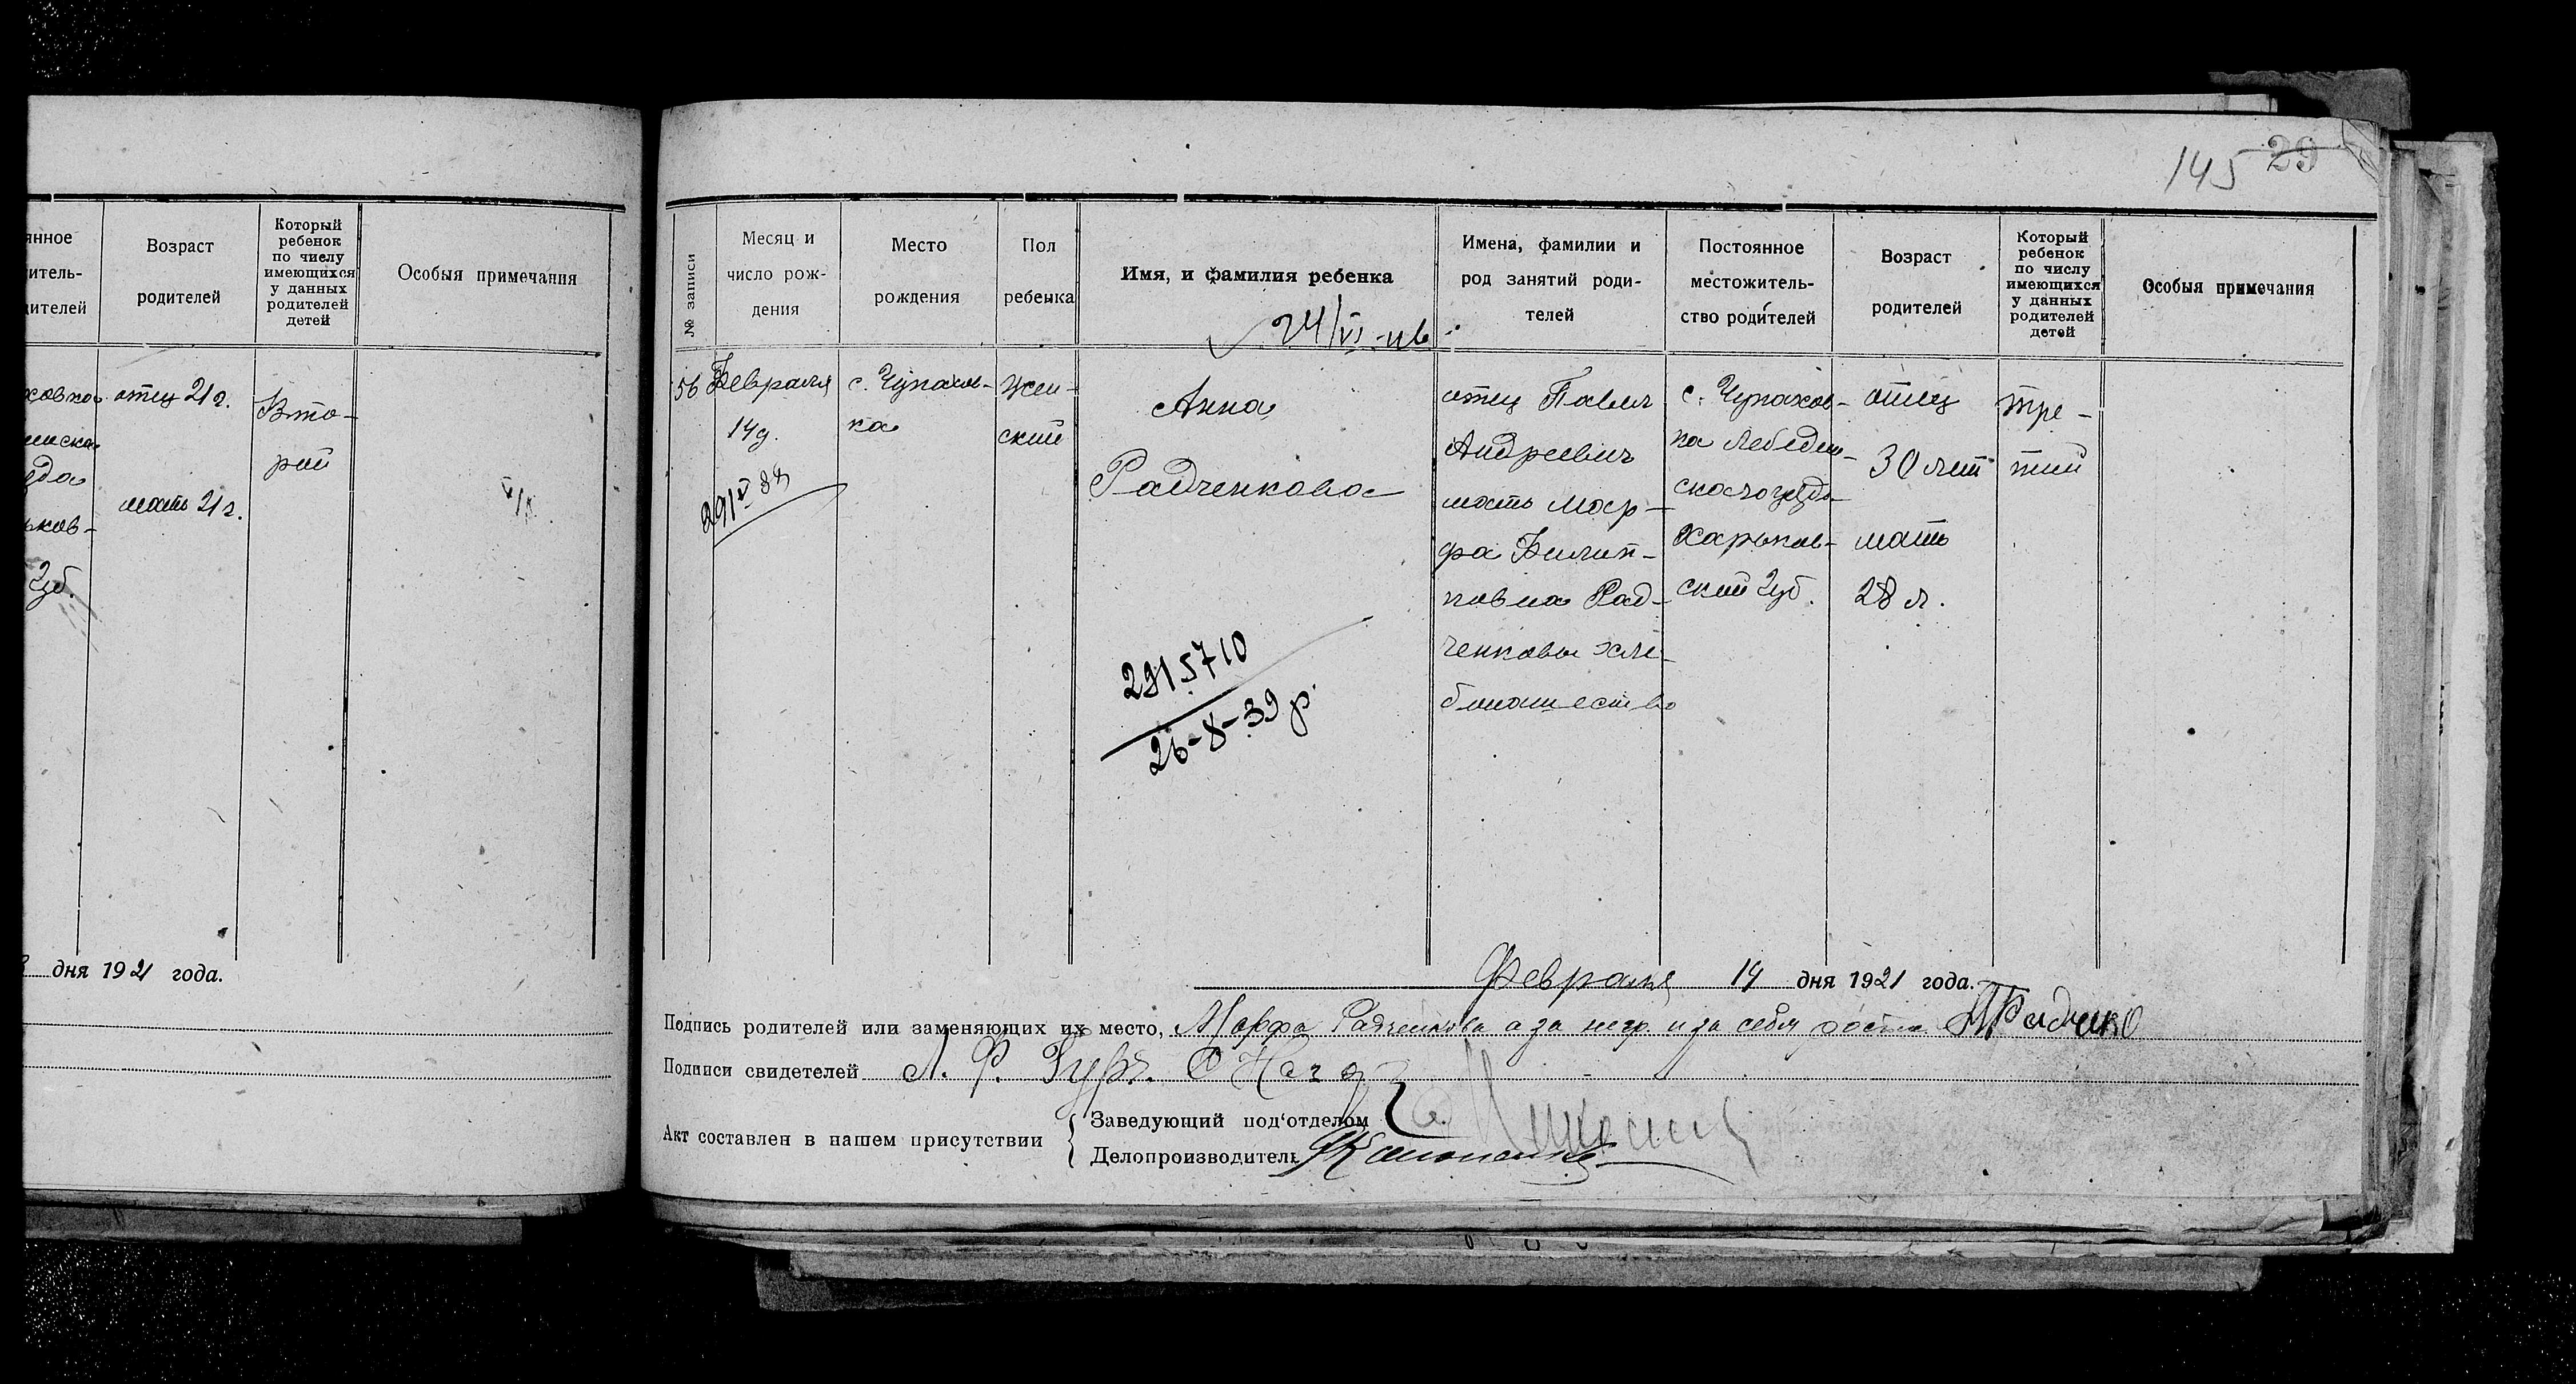 145 29
янное
итель-
дителей
Возраст
родителей
Который
ребенок
по числу
имеющихся
у данных
родителей
детей
Особыя примечания
отец 21 г.
мать 21 г.
Вто-
рой
Губ.
дня 1921 года.
№ записи
Месяц и
число рож-
дения
Место
рождения
Пол
ребенка
Имя, и фамилия ребенка
24/VI
Имена, фамилии и
род занятий роди-
телей
Постоянное
местожитель-
ство родителей
Возраст
родителей
Который
ребенок
по числу
имеющихся
у данных
родителей
детей
Особыя примечания
56
Февраля
14 д.
29/V 38
с. Чупахов-
ка
Жен-
ский
Анна
Радченкова
2915710
26-8-39 р.
отец Павел
Андреевич
мать Мар-
фа Филип-
повна Рад-
ченковы хле-
бопашество
с. Чупахов-
ка Лебедин-
скаго уезда
Харьков-
ский Губ.
отец
30 лет
мать
28 л.
тре-
тий
Февраля 14 дня 1921 года.
Подпись родителей или заменяющих их место, Марфа Радченкова а за негр. и за себя
Подписи свидетелей
Акт составлен в нашем присутствии
Заведующий под'отделом
Делопроизводитель